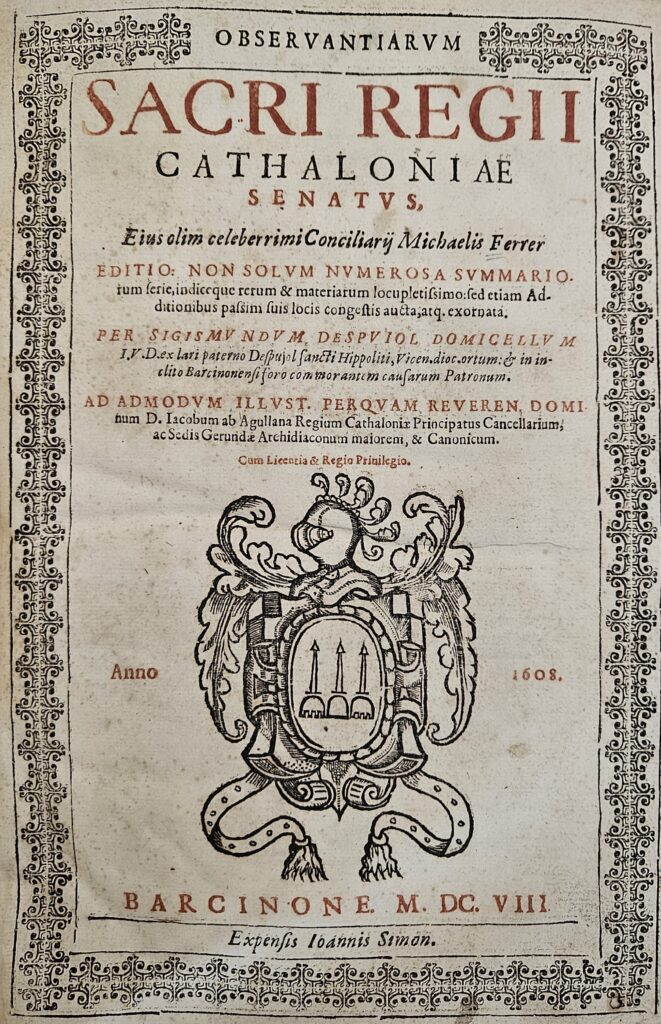 OBSERVANTIARVM
SACRI REGII
CATHALONIAE
SENATVS,
Eius olim celeberrimi Conciliarij Michaelis Ferrer
EDITIO: NON SOLVM NVMEROSA SVMMARIO-
rum serie, indiceque rerum & materiarum locupletissimo: sed etiam Ad-
ditionibus passim suis locis congestis aucta, atq. exornata.
PER SIGISMVNDVM DESPVIOL DOMICELLVM
I.V.D. ex lari paterno Despujol sancti Hippoliti, Vicen. dioc. ortum: & in in-
clito Barcinonensi foro commorantem causarum Patronum.
AD ADMODVM ILLVST. PERQVAM REVEREN. DOMI-
num D. Iacobum ab Agullana Regium Cathaloniæ Principatus Cancellarium,
ac Sedis Gerundæ Archidiaconum maiorem, & Canonicum.
Cum Licentia & Regio Priuilegio.
Anno 1608.
BARCINONE. M. DC. VIII
Expensis Ioannis Simon.